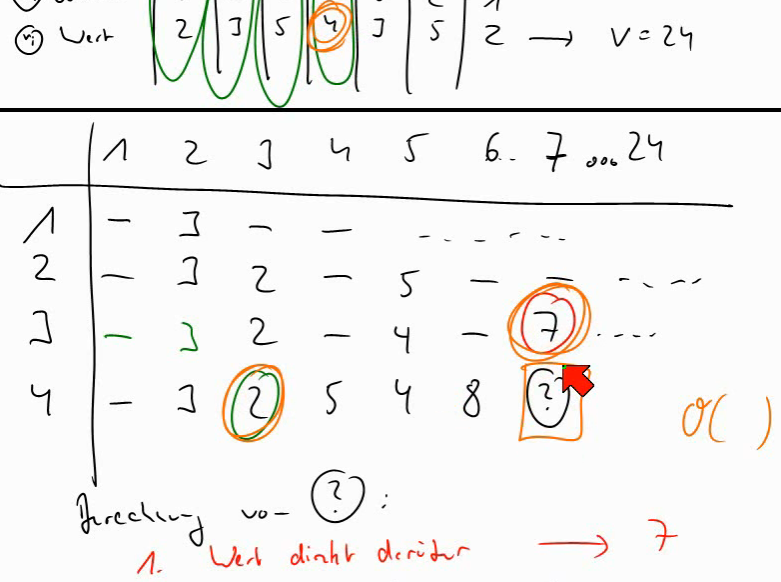 vi Wert 2 3 5 4 3 5 2 → V = 24
1 2 3 4 5 6.. 7 ... 24
1 – 3 – – - - - - - -
2 – 3 2 – 5 – – - - - -
3 – 3 2 – 4 – 7 ....
4 – 3 2 5 4 8 ?
O( )
Berechnung von ? :
1. Wert direkt darüber → 7